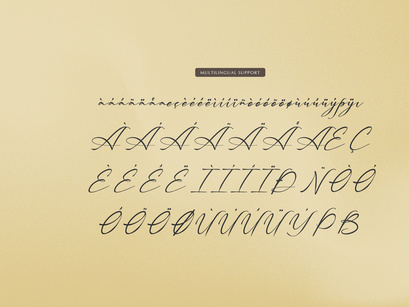 MULTILINGUAL SUPPORT
àáâãäåæçèéêëìíîïñòóôõöøùúûüýþÿ
ÀÁÂÃÄÅÆÇ
ÈÉÊËÌÍÎÏÐÑÒÓ
ÔÕÖØÙÚÛÜÝÞß